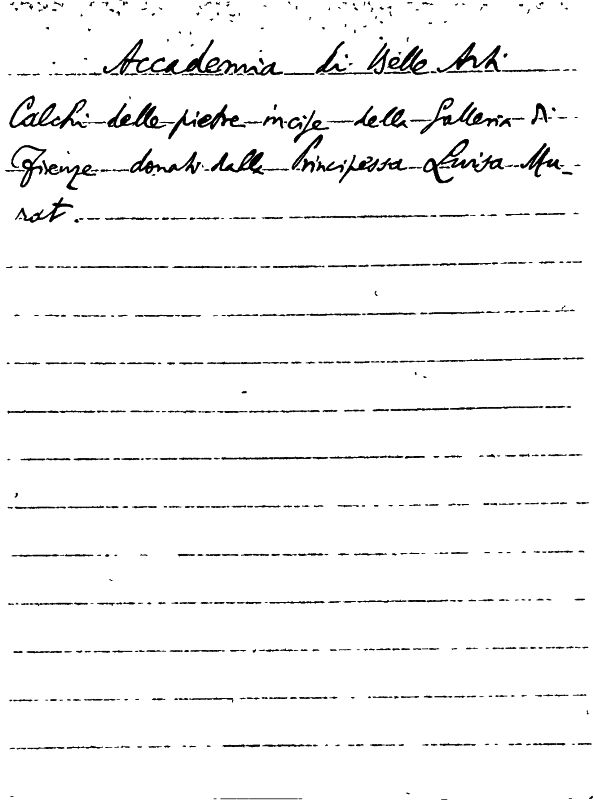 Accademia di Belle Arti
Calchi delle pietre incise della Galleria di
Firenze donati dalla Principessa Luisa Mu_
rat.